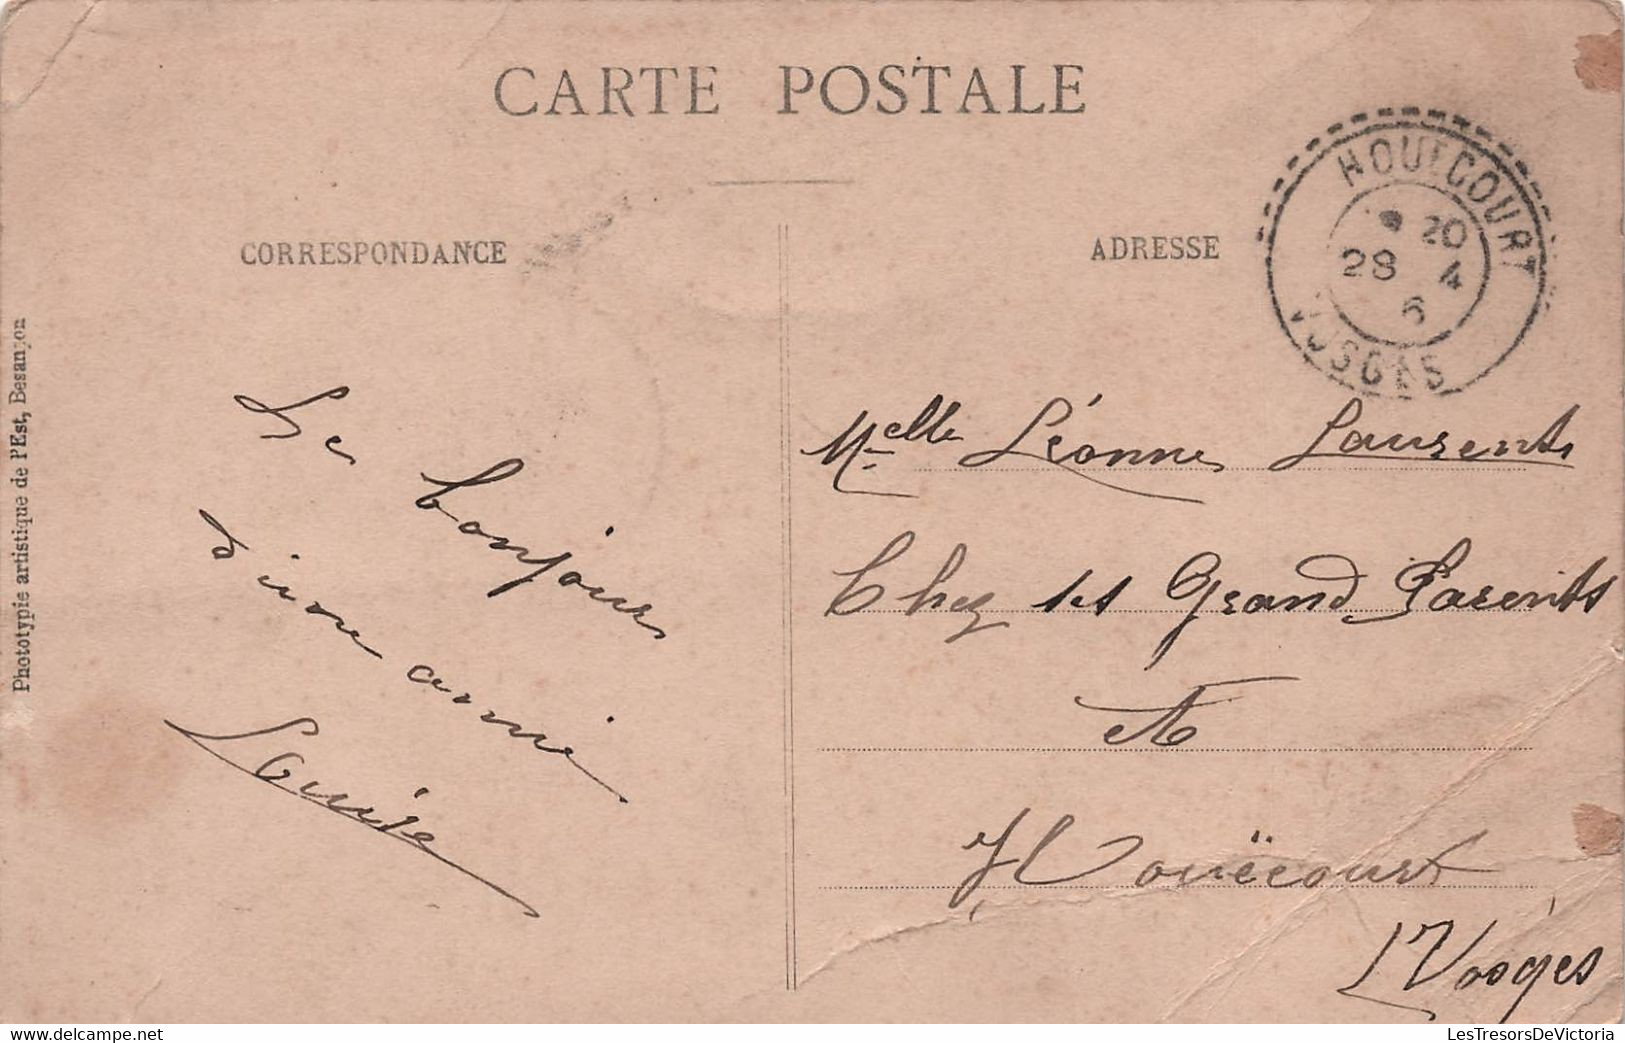 CARTE POSTALE
CORRESPONDANCE
ADRESSE
HOUÉCOURT
20
28 4
6
VOSGES
Phototypie artistique de l'Est, Besançon
Le bonjour
d'une amie
Louise
Melle Léonne Laurent
Chez ses Grand Parents
A
Houëcourt
Vosges
LesTresorsDeVictoria